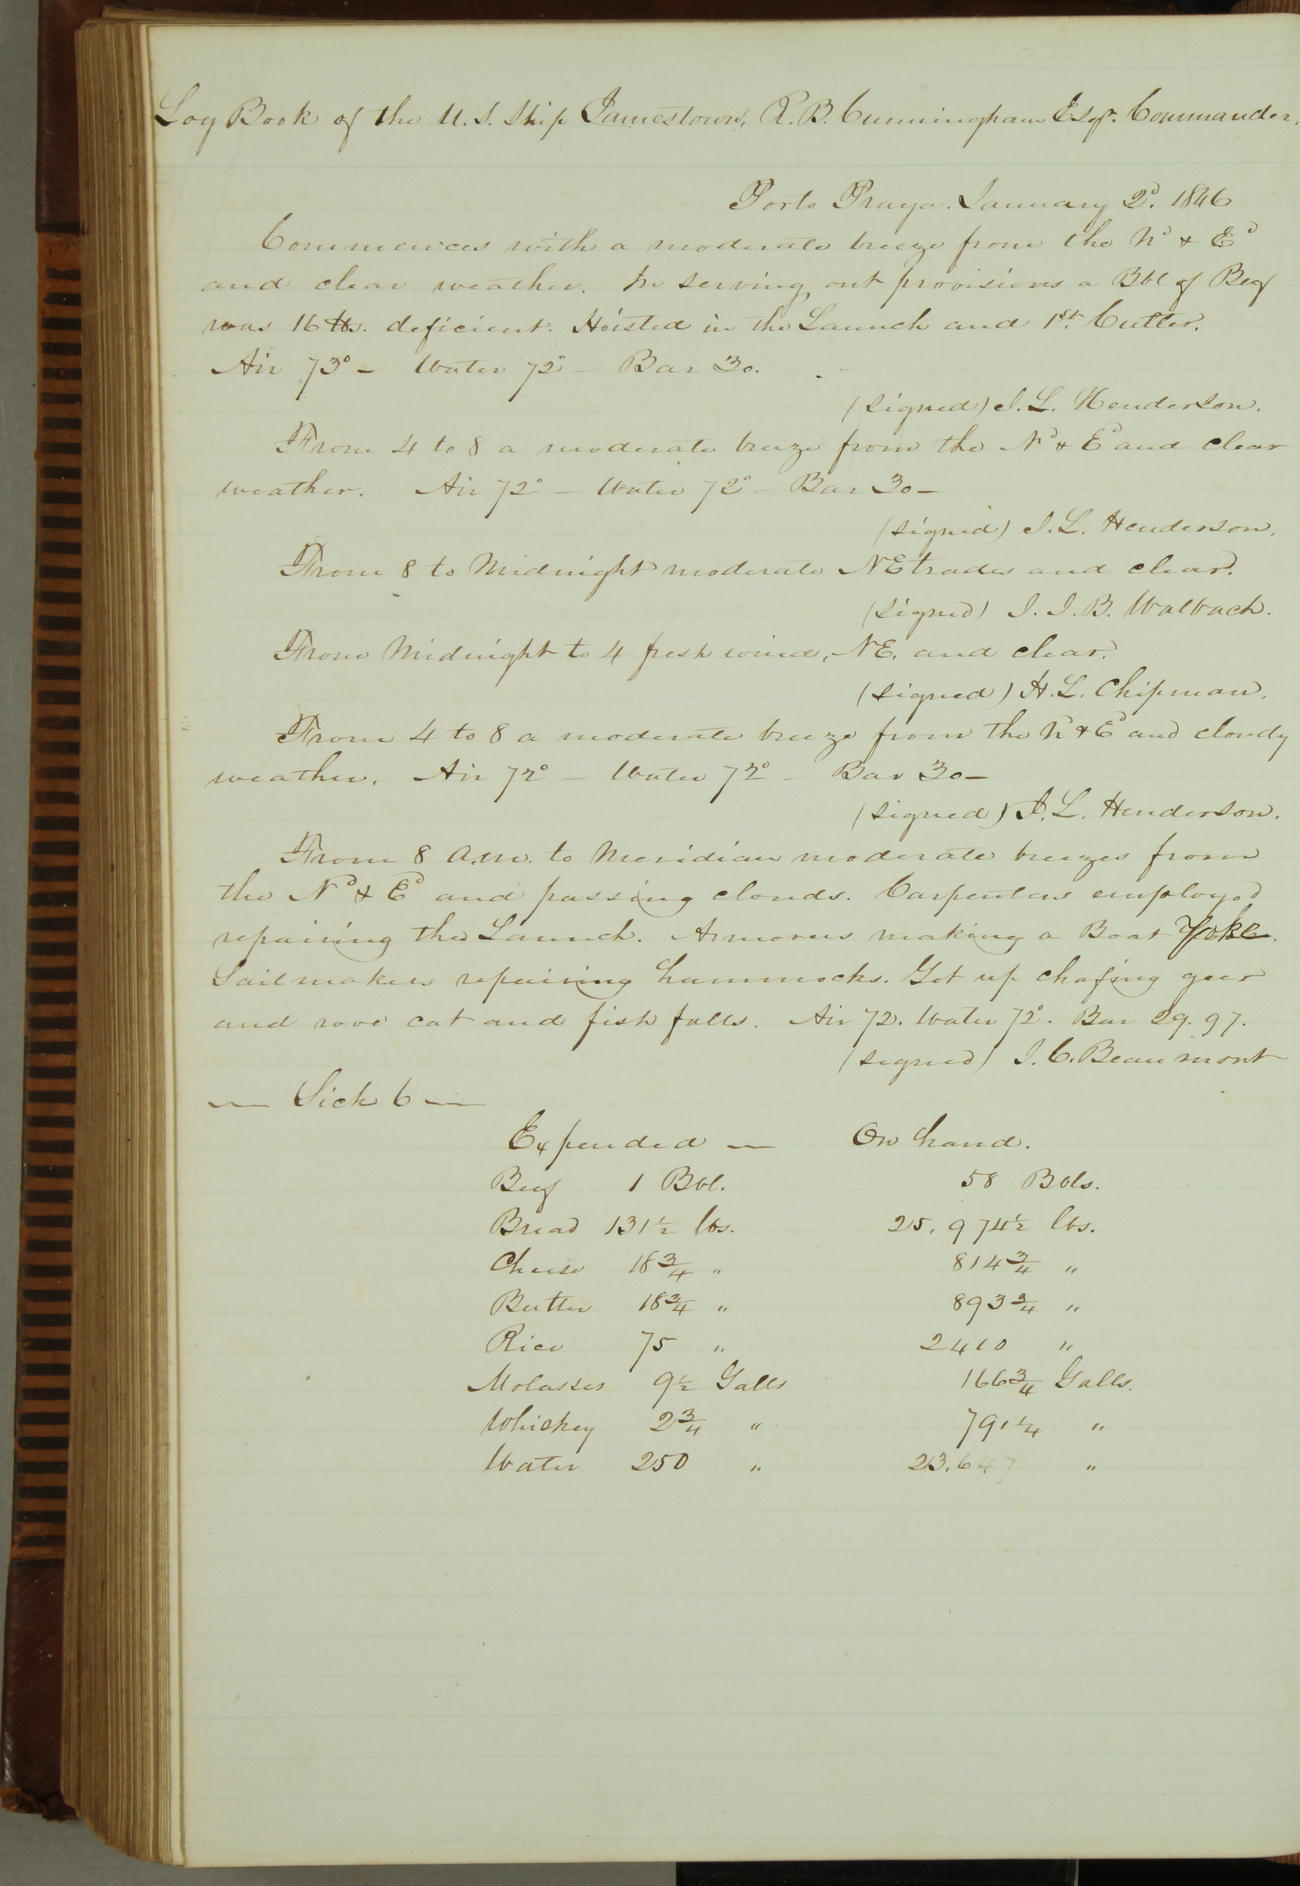 Log Book of the U.S. Ship Jamestown, R. B. Cunningham Esqr. Commander.
Porto Praya. January 2d. 1846
Commences with a moderate breeze from the Nd & Ed
and clear weather. In serving out provisions a Bbl of Beef
was 16 lbs. deficient. Hoisted in the Launch and 1st. Cutter.
Air 73° – Water 72° – Bar 30.
(signed) J. L. Henderson.
From 4 to 8 a moderate breeze from the Nd & Ed and clear
weather. Air 72° – Water 72° – Bar 30 –
(signed) J. L. Henderson.
From 8 to Midnight moderate NE trades and clear.
(signed) J. J. B. Walbach.
From Midnight to 4 fresh wind, NE. and clear.
(signed) H. L. Chipman.
From 4 to 8 a moderate breeze from the Nd & Ed and cloudy
weather. Air 72° – Water 72° – Bar 30 –
(signed) J. L. Henderson.
From 8 A.M. to Meridian moderate breezes from
the Nd & Ed and passing clouds. Carpenters employed
repairing the Launch. Armorers making a Boat Yoke.
Sailmakers repairing hammocks. Got up chafing geer
and rove cat and fish falls. Air 72. Water 72°. Bar 29.97.
(signed) J. C. Beaumont
— Sick 6 —
Expended — On hand.
Beef 1 Bbl. 58 Bbls.
Bread 131½ lbs. 25,974½ lbs.
Cheese 18¾ " 814¾ "
Butter 18¾ " 893¾ "
Rice 75 " 2410 "
Molasses 9½ Galls 166¾ Galls.
Whiskey 2¾ " 791¼ "
Water 250 " 23,647 "